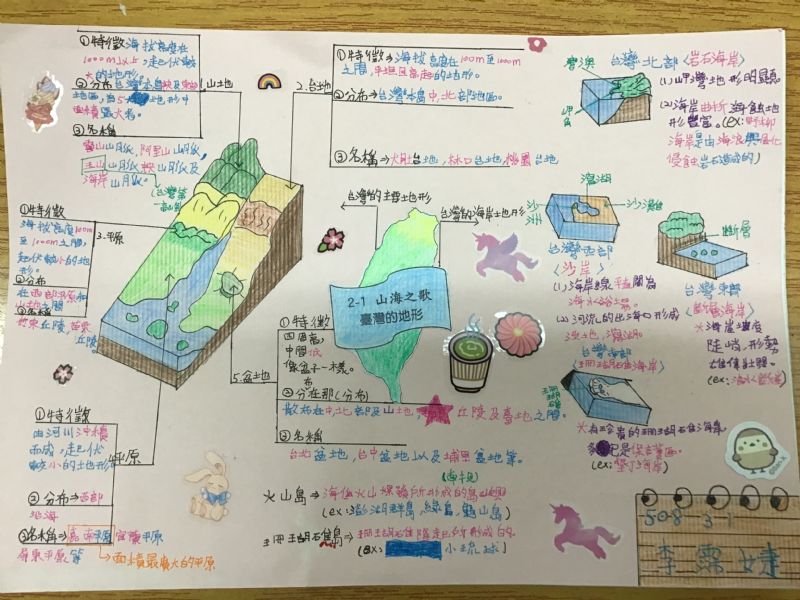 ①特徵 海拔高度在
1000m以上,起伏較
大的地形。
②分布 台灣本島
地區,為5大地形中
面積最大者。
③名稱
雪山山脈,阿里山山脈,
玉山山脈 及
海岸山脈。
台灣第一高山
1.山地
2.台地
①特徵⇒海拔高度在100m至1000m
之間,平坦且高起的地形。
②分布⇒台灣本島中、北部地區。
③名稱⇒大肚台地,林口台地 桃園台地
①特徵
海拔高度100m
至1000m之間,
起伏較小的地
形。
②分布
③名稱
竹東丘陵,苗栗
丘陵。
3.平原
台灣的主要地形
台灣的海岸地形
2-1 山海之歌
臺灣的地形
5.盆地
①特徵
四周高,
中間低
像盆子一樣。
②分在那(分布)
散布在中、北部及山地, 丘陵及台地之間。
③名稱
台北盆地,台中盆地以及埔里盆地等。
(南投)
火山島⇒海底火山噴發所形成的島嶼
(ex:澎湖群島,綠島,龜山島)
珊瑚礁島⇒珊瑚礁隆起所形成的。
(ex: 小琉球)
①特徵
由河川沖積
而成,起伏
較小的地形
平原
②分布⇒西部
沿海
③名稱⇒嘉南平原 宜蘭平原
屏東平原等
面積最廣大的平原
灣澳
岬角
台灣北部〈岩石海岸〉
(1)岬灣地形明顯
(2)海岸曲折 海蝕地
形豐富。(ex:野柳
海岸是由海浪與風化
侵蝕岩石造成的)
潟湖
沙洲
沙灘
台灣西部
〈沙岸〉
(1)海岸線平直
(2)河流的出海口形成
沙洲,潟湖。
斷層
台灣東部
〈斷層海岸〉
海岸
陡峭,形勢
雄偉壯麗。
(ex:清水斷崖)
台灣南部
〈珊瑚礁海岸〉
珊瑚礁
有珍貴的珊瑚礁海岸
(ex:墾丁海岸)
508 3-1
李